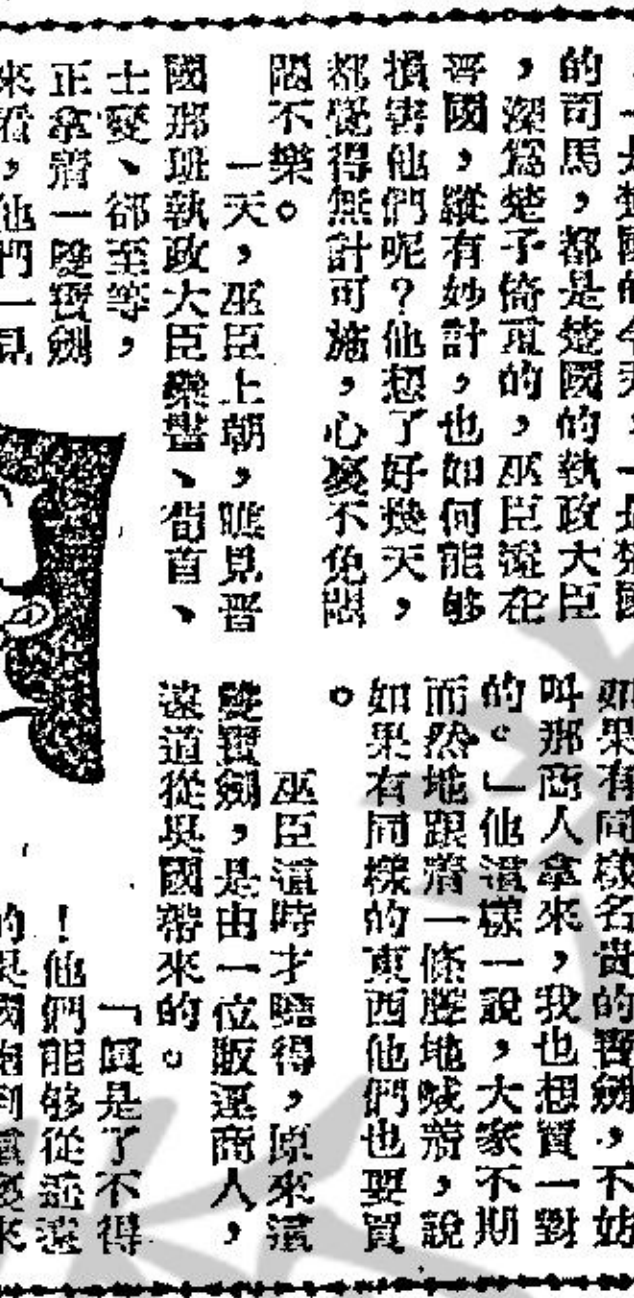 一是楚國的令尹，一是楚國
的司馬，都是楚國的執政大臣
，深為楚子倚重的，巫臣遠在
晉國，縱有妙計，也如何能够
損害他們呢？他想了好幾天，
都覺得無計可施，心裏不免悶
悶不樂。
一天，巫臣上朝，瞧見晉
國那班執政大臣欒書、荀首、
士燮、郤至等，
正拿着一雙寶劍
來看，他們一見
如果有同樣名貴的寶劍，不妨
叫那商人拿來，我也想買一對
的。」他這樣一說，大家不期
而然地跟着一條腔地喊着，說
如果有同樣的東西他們也要買
。
巫臣這時才曉得，原來這
雙寶劍，是由一位販運商人，
遠道從吳國帶來的。
「真是了不得
！他們能够從遙遠
的吳國跑到這裏來